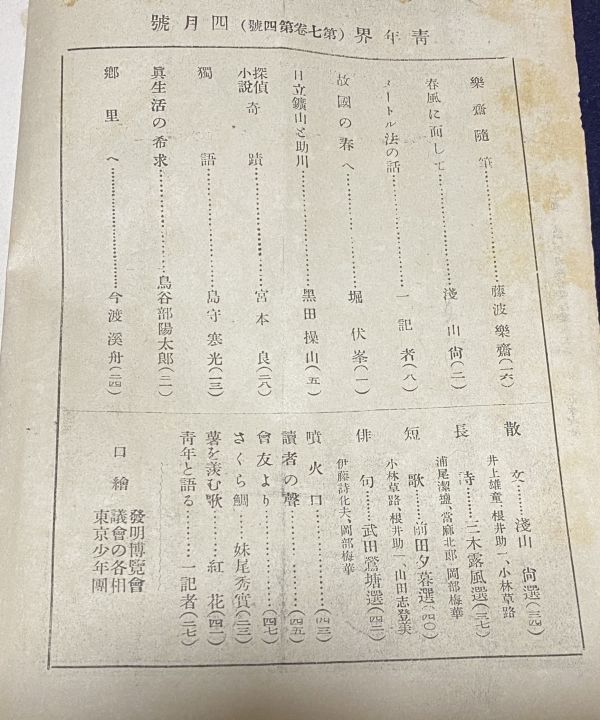 靑年界（第七卷第四號）四月號
樂齋隨筆……………藤波樂齋（一六）
春風に面して……………淺山尙（二）
メートル法の話……………一記者（八）
故國の春へ……………堀伏峯（一）
日立鑛山と助川……………黑田操山（五）
探偵小說 奇蹟……………宮本良（二八）
獨語……………島守寒光（一三）
眞生活の希求……………鳥谷部陽太郎（二一）
鄕里へ……………今渡溪舟（二四）
散文……淺山尙選（三四）
井上雄童、根井助一、小林草路
長詩……三木露風選（三七）
浦尾潔盧、當麻北郞、岡部梅華
短歌……前田夕暮選（四〇）
小林草路、根井助一、山田志登美
俳句……武田鶯塘選（四二）
伊藤詩化夫、岡部梅華
噴火口……………（四三）
讀者の聲……………（四五）
會友より……………（四七）
さくら鯛……妹尾秀實（二三）
薯を羨む歌……紅花（四一）
靑年と語る……一記者（二七）
口繪
發明博覽會
議會の各相
東京少年團